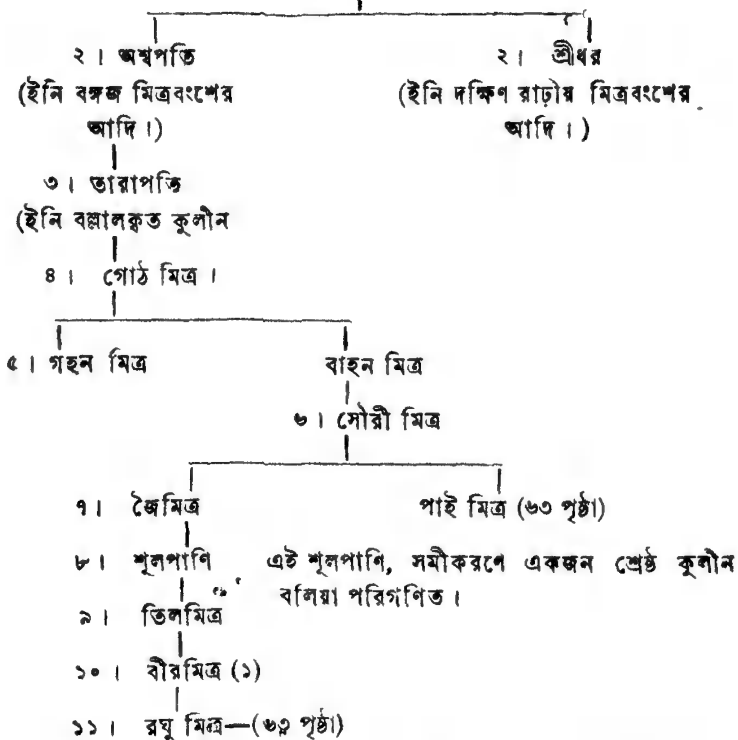 ২। অশ্বপতি ২। শ্রীধর
(ইনি বঙ্গজ মিত্রবংশের (ইনি দক্ষিণ রাঢ়ীয় মিত্রবংশের
আদি।) আদি।)
৩। তারাপতি
(ইনি বল্লালকৃত কুলীন
৪। গোঠ মিত্র।
৫। গহন মিত্র বাহন মিত্র
৬। সৌরী মিত্র
৭। জৈমিত্র পাই মিত্র (৬৩ পৃষ্ঠা)
৮। শূলপাণি এই শূলপাণি, সমীকরণে একজন শ্রেষ্ঠ কুলীন
৯। তিলমিত্র বলিয়া পরিগণিত।
১০। বীরমিত্র (১)
১১। রঘু মিত্র—(৬২ পৃষ্ঠা)